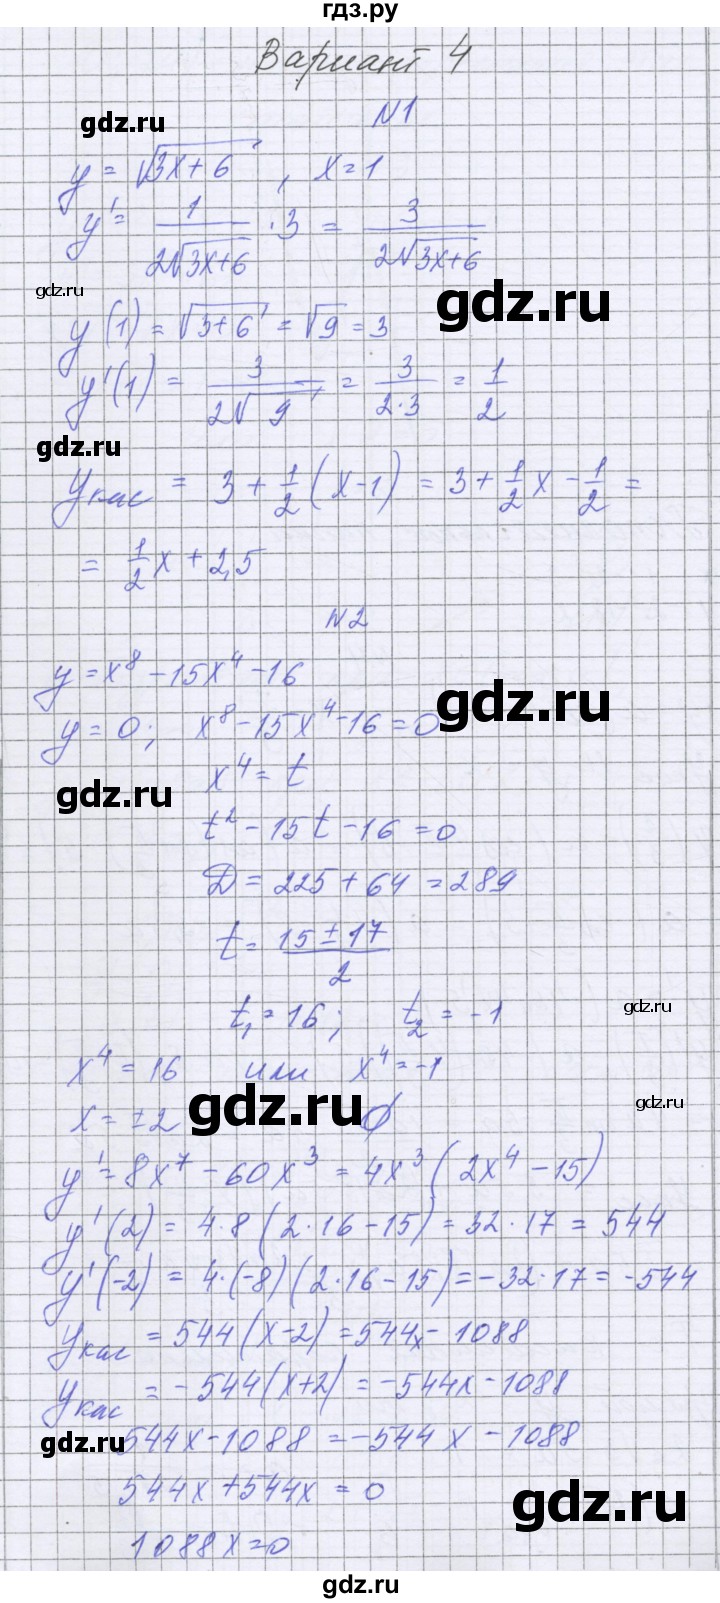 гдз.ру
Вариант 4
gdz.ru
N1
y = √(3x+6) , x=1
y' = 1/(2√(3x+6)) · 3 = 3/(2√(3x+6))
gdz.ru
gdz.ru
y(1) = √(3+6) = √9 = 3
y'(1) = 3/(2√9) = 3/(2·3) = 1/2
gdz.ru
yкас = 3 + 1/2 (x-1) = 3 + 1/2 x - 1/2 =
= 1/2 x + 2,5
N2
y = x⁸ - 15x⁴ - 16
gdz.ru
y = 0; x⁸ - 15x⁴ - 16 = 0
x⁴ = t
gdz.ru
t² - 15t - 16 = 0
D = 225 + 64 = 289
t = (15 ± 17)/2
t₁ = 16; t₂ = -1
gdz.ru
x⁴ = 16 или x⁴ = -1
gdz.ru
gdz.ru
x = ±2 ∅
y' = 8x⁷ - 60x³ = 4x³(2x⁴ - 15)
y'(2) = 4·8(2·16-15) = 32·17 = 544
y'(-2) = 4·(-8)(2·16-15) = -32·17 = -544
yкас = 544(x-2) = 544x - 1088
yкас = -544(x+2) = -544x - 1088
gdz.ru
544x - 1088 = -544x - 1088
544x + 544x = 0
gdz.ru
1088x = 0
gdz.ru